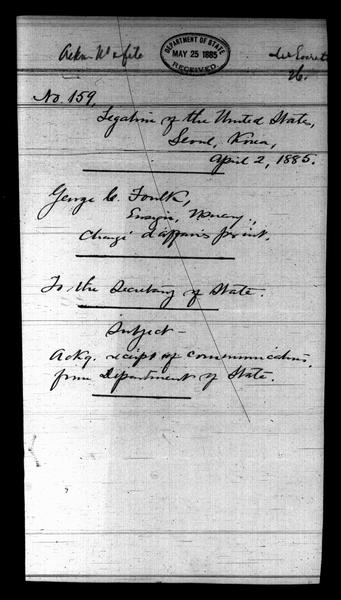 DEPARTMENT OF STATE
MAY 25 1885
RECEIVED.
No. 159.
Legation of the United States,
Seoul, Korea,
April 2, 1885.
George C. Foulk,
Ensign, U.S. Navy.,
Chargé d'affaires p
To the Secretary of State.
Subject –
Ackg. receipt of communications,
from Department of State.